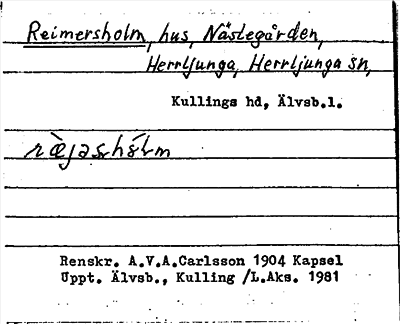 Reimersholm, hus, Näslegården,
Herrljunga, Herrljunga sn,
Kullings hd, Älvsb.l.
Renskr. A.V.A.Carlsson 1904 Kapsel
Uppt. Älvsb., Kulling /L.Aks. 1981